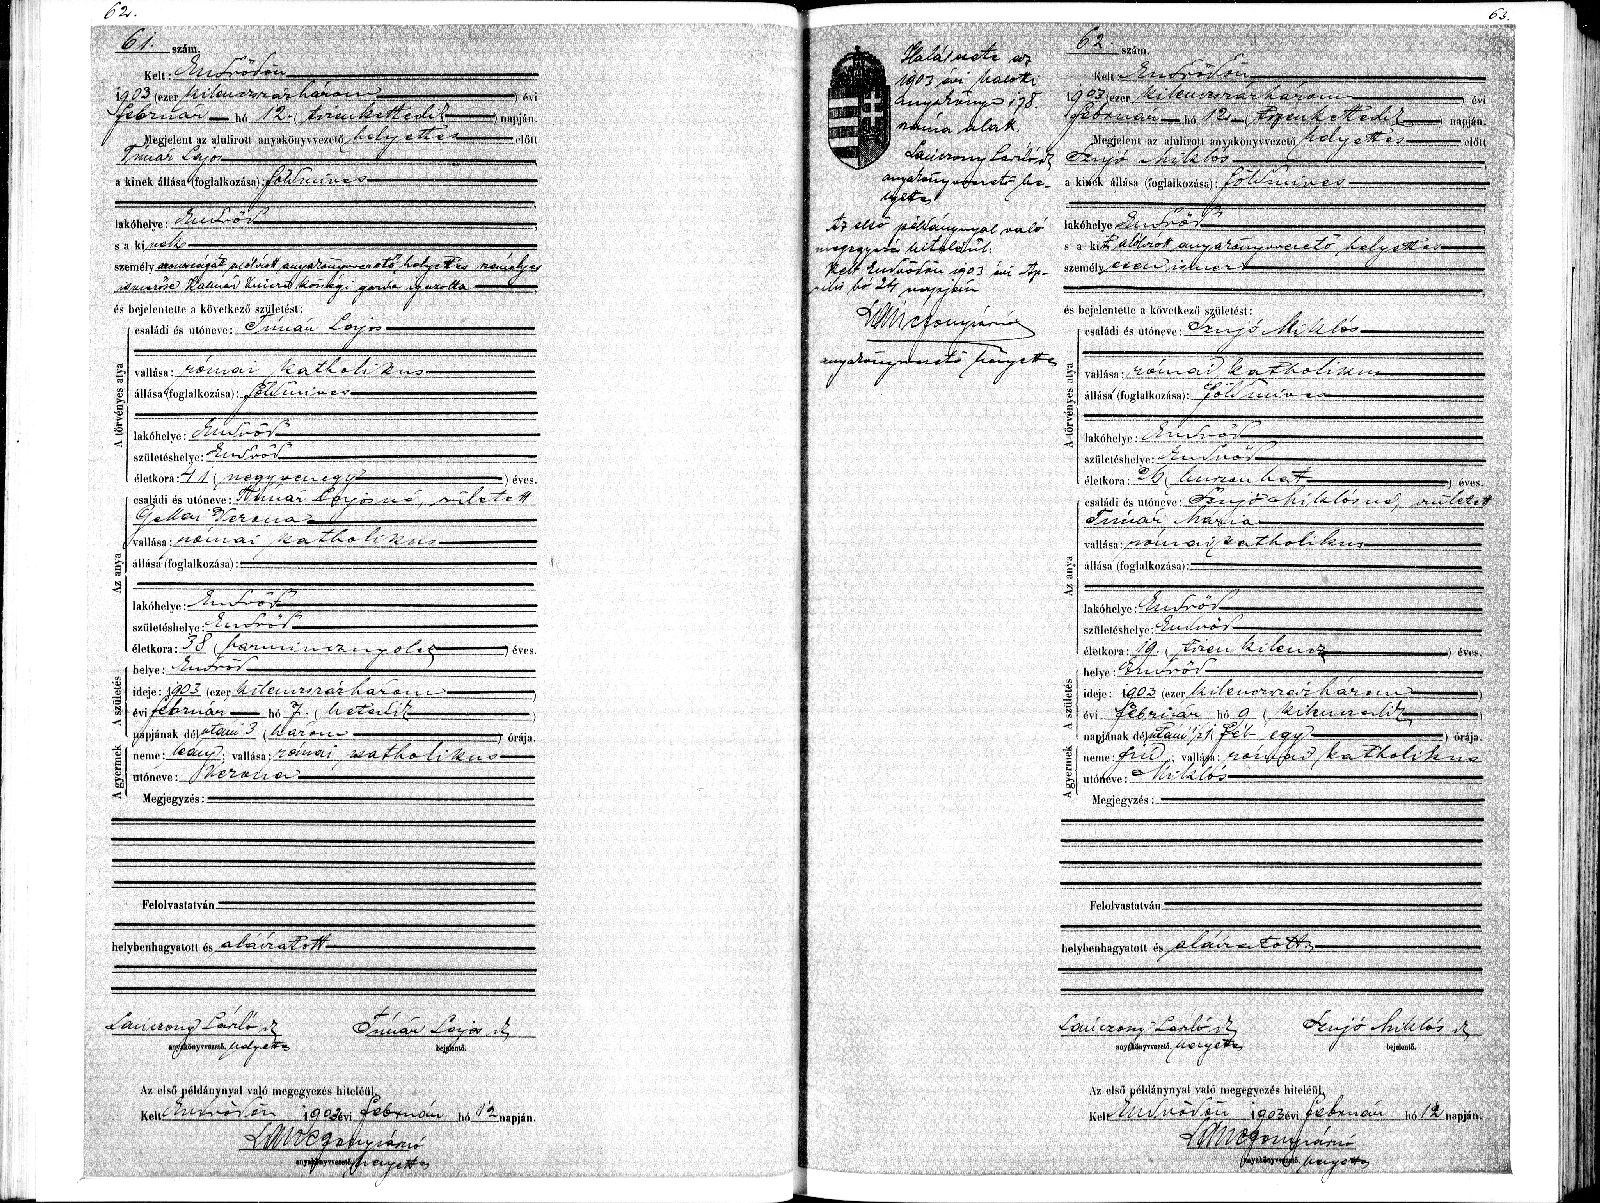 62.
61. szám.
Kelt: Endrődön
1903 (ezer kilenczszázhárom) évi
február hó 12. (tizenkettedik) napján.
Megjelent az alulirott anyakönyvvezető helyettes előtt
Tímár Lajos
a kinek állása (foglalkozása): földmíves
lakóhelye: Endrőd
s a kinek
személyazonosságát alólirott anyakönyvvezető helyettes személyes
ismerőse Kálmán községi gazda igazolta
és bejelentette a következő születést:
A törvényes atya
családi és utóneve: Tímár Lajos
vallása: római katholikus
állása (foglalkozása): földmíves
lakóhelye: Endrőd
születéshelye: Endrőd
életkora: 41 (negyvenegy) éves.
Az anya
családi és utóneve: Tímár Lajosné, született
Gellai Verona
vallása: római katholikus
állása (foglalkozása):
lakóhelye: Endrőd
születéshelye: Endrőd
életkora: 38 (harmincznyolcz) éves.
A születés
helye: Endrőd
ideje: 1903 (ezer kilenczszázhárom)
évi február hó 7. (hetedik)
napjának délutáni 3 (három) órája.
A gyermek
neme: leány; vallása: római katholikus
utóneve: Verona
Megjegyzés:
Felolvastatván
helybenhagyatott és aláiratott
Lánczonyi László sk Tímár Lajos sk
anyakönyvvezető. helyettes bejelentő.
Az első példánynyal való megegyezés hiteléül.
Kelt Endrődön 1903 évi február hó 12 napján.
anyakönyvvezető. helyettes
Halál esete az
1903 évi halotti
anyakönyv 178.
száma alatt.
Lánczonyi László sk
anyakönyvvezető he-
lyettes
Az első példánynyal való
megegyezés hiteléül.
Kelt Endrődön 1903 évi Áp-
rilis hó 24 napján
anyakönyvvezető helyettes
63.
62 szám.
Kelt: Endrődön
1903 (ezer kilenczszázhárom) évi
február hó 12. (tizenkettedik) napján.
Megjelent az alulirott anyakönyvvezető helyettes előtt
Szujó Miklós
a kinek állása (foglalkozása): földmíves
lakóhelye: Endrőd
s a kit alólirott anyakönyvvezető helyettes
személyesen ismer
és bejelentette a következő születést:
A törvényes atya
családi és utóneve: Szujó Miklós
vallása: római katholikus
állása (foglalkozása): földmíves
lakóhelye: Endrőd
születéshelye: Endrőd
életkora: 26 (huszonhat) éves.
Az anya
családi és utóneve: Szujó Miklósné, született
Tímár Mária
vallása: római katholikus
állása (foglalkozása):
lakóhelye: Endrőd
születéshelye: Endrőd
életkora: 19. (tizenkilencz) éves.
A születés
helye: Endrőd
ideje: 1903 (ezer kilenczszázhárom)
évi február hó 9 (kilenczedik)
napjának délutáni egy órája.
A gyermek
neme: fiú; vallása: római katholikus
utóneve: Miklós
Megjegyzés:
Felolvastatván
helybenhagyatott és aláiratott
Lánczonyi László sk Szujó Miklós sk
anyakönyvvezető. helyettes bejelentő.
Az első példánynyal való megegyezés hiteléül.
Kelt Endrődön 1903 évi február hó 12 napján.
anyakönyvvezető. helyettes